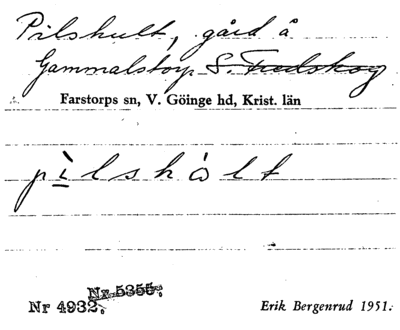 Pilshult, gård å
Gammalstorp S. Fredskog
Farstorps sn, V. Göinge hd, Krist. län
pìlshålt
Nr 5355.
Nr 4932.
Erik Bergenrud 1951.